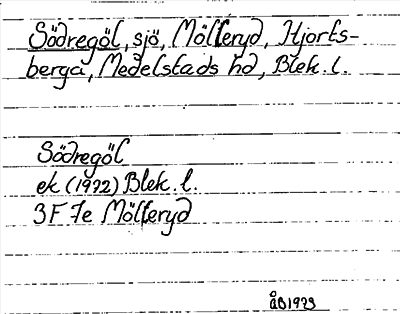 Södregöl, sjö, Mölleryd, Hjorts-
berga, Medelstads hd, Blek. l.
Södregöl
ek (1972) Blek. l.
3F 7e Mölleryd
ÅB1973